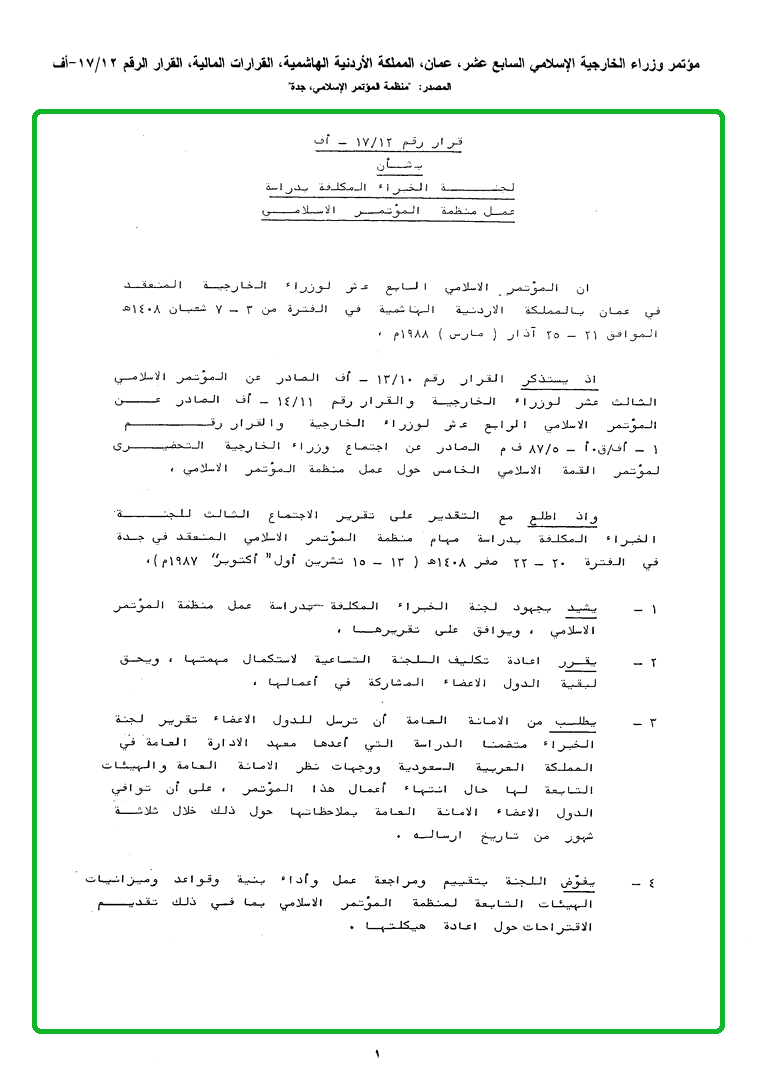 مؤتمر وزراء الخارجية الإسلامي السابع عشر، عمان، المملكة الأردنية الهاشمية، القرارات المالية، القرار الرقم ١٧/١٢-أف
المصدر: "منظمة المؤتمر الإسلامي، جدة"
قرار رقم ١٧/١٢ – أف
بشأن
لجنة الخبراء المكلفة بدراسة
عمل منظمة المؤتمر الاسلامي
ان المؤتمر الاسلامي السابع عشر لوزراء الخارجية المنعقد
في عمان بالمملكة الاردنية الهاشمية في الفترة من ٣ – ٧ شعبان ١٤٠٨ه
الموافق ٢١ – ٢٥ آذار ( مارس ) ١٩٨٨م ،
اذ يستذكر القرار رقم ١٣/١٠ – أف الصادر عن المؤتمر الاسلامي
الثالث عشر لوزراء الخارجية والقرار رقم ١٤/١١ – أف الصادر عن
المؤتمر الاسلامي الرابع عشر لوزراء الخارجية والقرار رقم
١ – أف/ق.أ – ٨٧/٥ ف م الصادر عن اجتماع وزراء الخارجية التحضيرى
لمؤتمر القمة الاسلامي الخامس حول عمل منظمة المؤتمر الاسلامي ،
واذ اطلع مع التقدير على تقرير الاجتماع الثالث للجنة
الخبراء المكلفة بدراسة مهام منظمة المؤتمر الاسلامي المنعقد في جدة
في الفترة ٢٠ – ٢٢ صفر ١٤٠٨ه ( ١٣ – ١٥ تشرين أول" أكتوبر" ١٩٨٧م )،
١ – يشيد بجهود لجنة الخبراء المكلفة بدراسة عمل منظمة المؤتمر
الاسلامي ، ويوافق على تقريرها ،
٢ – يقرر اعادة تكليف اللجنة التساعية لاستكمال مهمتها ، ويحق
لبقية الدول الاعضاء المشاركة في أعمالها ،
٣ – يطلب من الامانة العامة أن ترسل للدول الاعضاء تقرير لجنة
الخبراء متضمنا الدراسة التي أعدها معهد الادارة العامة في
المملكة العربية السعودية ووجهات نظر الامانة العامة والهيئات
التابعة لها حال انتهاء أعمال هذا المؤتمر ، على أن توافي
الدول الاعضاء الامانة العامة بملاحظاتها حول ذلك خلال ثلاثة
شهور من تاريخ ارساله .
٤ – يفوّض اللجنة بتقييم ومراجعة عمل وأداء بنية وقواعد وميزانيات
الهيئات التابعة لمنظمة المؤتمر الاسلامي بما في ذلك تقديم
الاقتراحات حول اعادة هيكلتها .
١